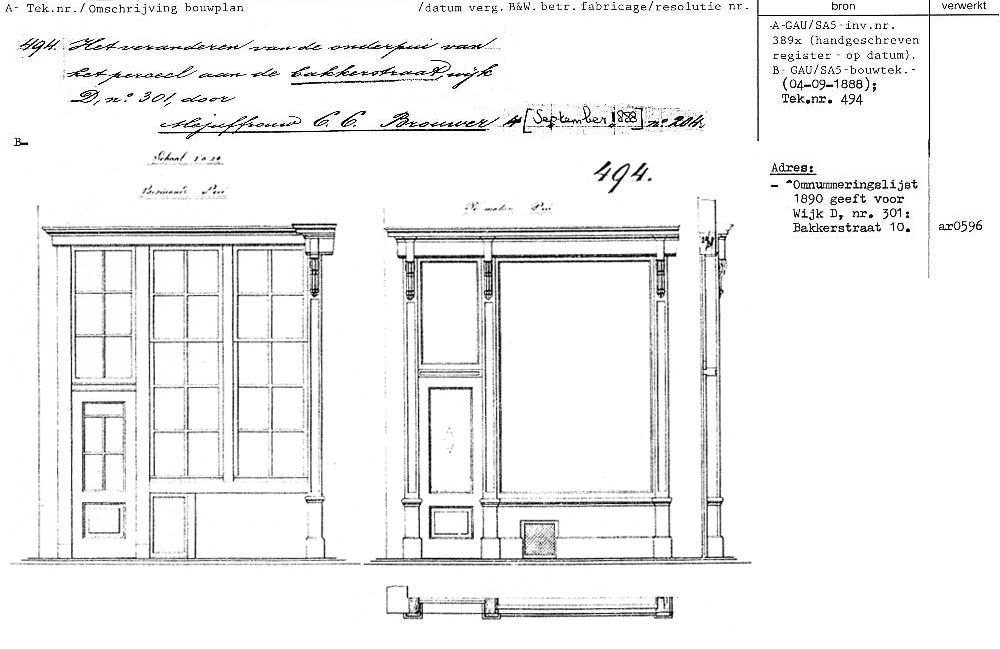 A- Tek.nr./Omschrijving bouwplan /datum verg. B&W. betr. fabricage/resolutie nr.
bron
verwerkt
494. Het veranderen van de onderpui van
het perceel aan de Bakkerstraat, wijk
D, nº 301, door
Mejuffrouw C. C. Brouwer 4 [September 1888] nº 204.
A-GAU/SA5-inv.nr.
389x (handgeschreven
register - op datum).
B- GAU/SA5-bouwtek.-
(04-09-1888);
Tek.nr. 494
B-
Schaal 1 à 20
Bestaande Pui
494.
Te maken Pui
Adres:
- ^Omnummeringslijst
1890 geeft voor
Wijk D, nr. 301:
Bakkerstraat 10.
ar0596